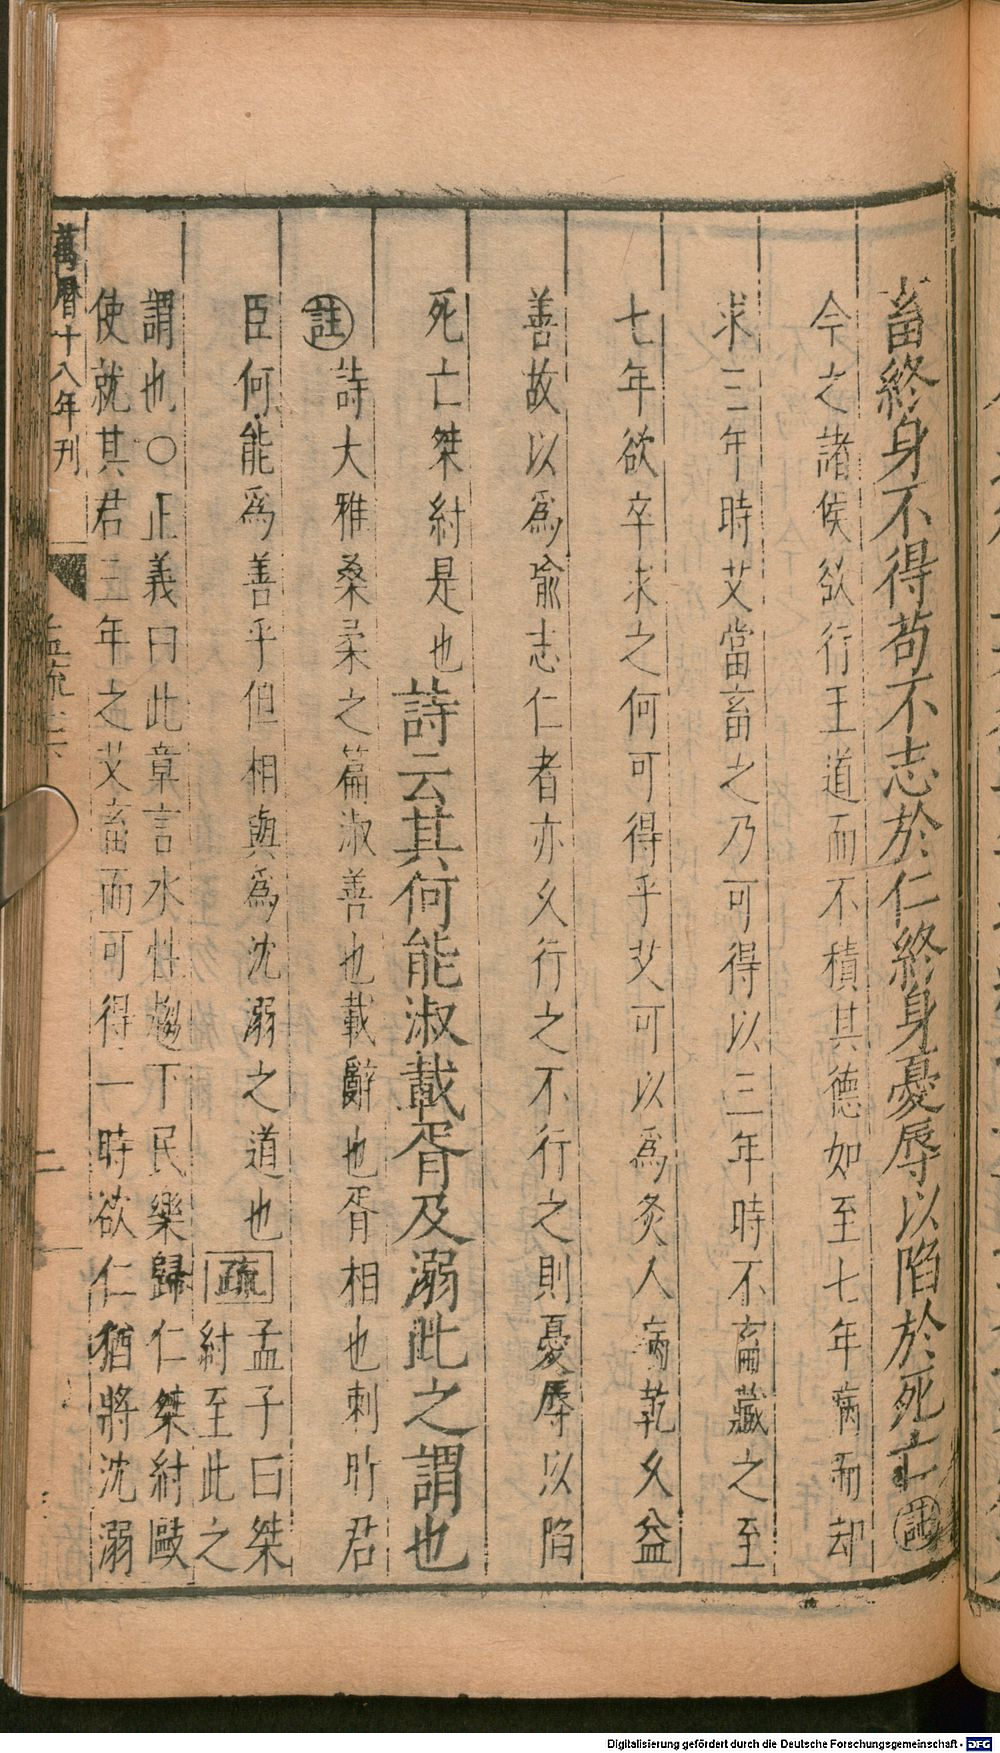 畜終身不得苟不志於仁終身憂辱以陷於死亡註
今之諸侯欲行王道而不積其德如至七年病而却
求三年時艾當畜之乃可得以三年時不畜藏之至
七年欲卒求之何可得乎艾可以爲灸人病乾久益
善故以爲喻志仁者亦久行之不行之則憂辱以陷
死亡桀紂是也詩云其何能淑載胥及溺此之謂也
註詩大雅桑柔之篇淑善也載辭也胥相也刺時君
臣何能爲善乎但相與爲沈溺之道也疏孟子曰桀
紂至此之
謂也○正義曰此章言水性趨下民樂歸仁桀紂敺
使就其君三年之艾畜而可得一時欲仁猶將沈溺
萬曆十八年刊
孟疏
二
Digitalisierung gefördert durch die Deutsche Forschungsgemeinschaft - DFG